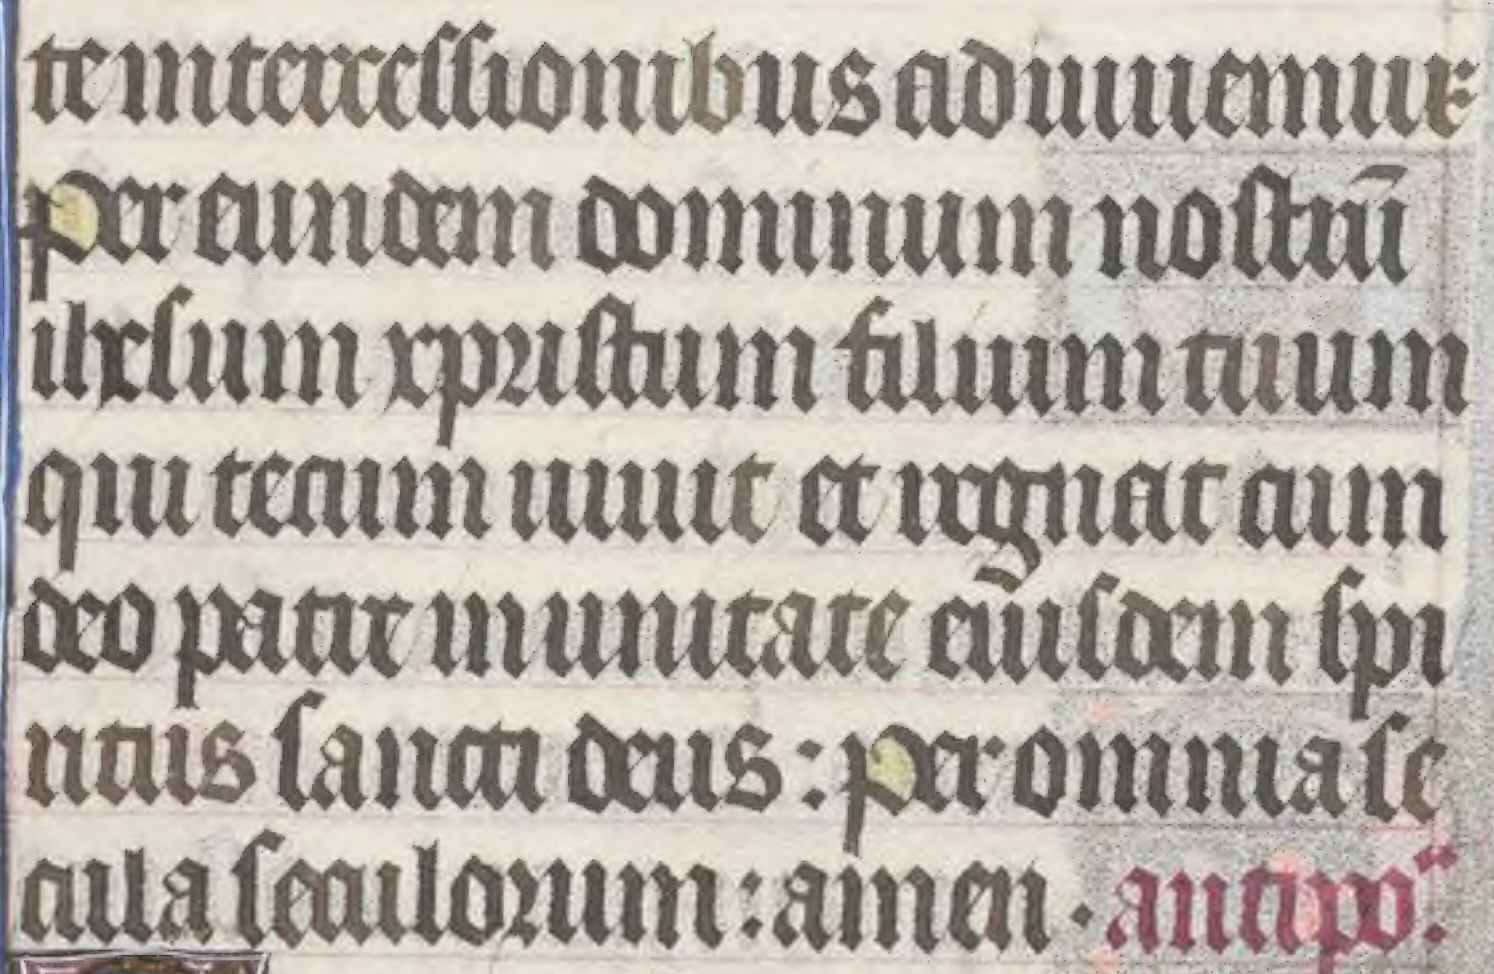 te intercessionibus adiuuemur:
Per eundem dominum nostrū
ihesum xpristum filium tuum
qui tecum uiuit et regnat cum
deo patre in unitate eiusdem spi
ritus sancti deus: Per omnia se
cula seculorum: amen. antipo.